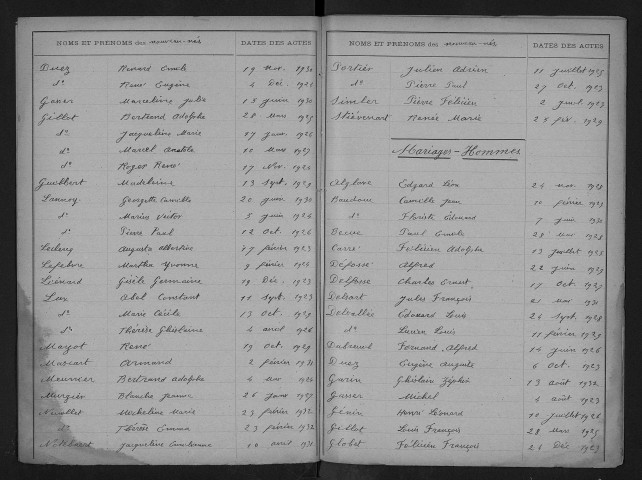 NOMS ET PRÉNOMS des nouveau-nés DATES DES ACTES
Duez Renard Emile 19 nov. 1930
do René Eugène 4 Déc. 1926
Marceline Julia 15 juin 1930
Gillot Bertrand Adolphe 28 mars 1925
do Jacqueline Marie 17 janv. 1926
do Marcel Anatole 10 mars 1927
do Roger René 17 Nov. 1926
Guebbert Madeleine 13 sept. 1929
Lannoy Georgette Camille 20 janv. 1930
do Marius Victor 5 juin 1926
do Pierre Paul 12 Oct. 1926
Leclercq Augusta Albertine 17 février 1923
Lefebvre Marthe Yvonne 9 février 1926
Liénard Gisèle Germaine 19 Déc. 1923
Lux Abel Constant 11 sept. 1923
do Marie Cécile 13 Oct. 1929
do Thérèse Ghislaine 4 avril 1926
Mayot René 19 Oct. 1929
Mascart Armand 2 février 1931
Meunier Bertrand Adolphe 4 nov. 1924
Murgier Blanche Jeanne 26 janv. 1927
Nivollet Micheline Marie 23 février 1932
do Thérèse Emma 23 février 1932
Jacqueline 16 avril 1931
NOMS ET PRÉNOMS des nouveau-nés DATES DES ACTES
Portier Julien Adrien 11 juillet 1925
do Pierre Paul 27 Oct. 1923
Simber Pierre Félicien 2 1923
Stiévenart Renée Marie 25 fév. 1929
Mariages - Hommes
Edgard Léon 24 nov. 1928
Baudoux Camille Jean 10 février 1923
do Floride Edouard 7 juin 1930
Paul Emile 29 mai 1928
Carré Félicien Adolphe 13 juillet 1923
Défossé Alfred 22 juin 1929
Delfosse Charles Ernest 17 Oct. 1929
Delsart Jules François 21 nov. 1931
Delvallée Edouard Louis 24 sept. 1928
do Lucien Louis 11 février 1929
Dubreuil Fernand Alfred 14 juin 1926
Duez Eugène Auguste 6 Oct. 1923
Garin Ghislain Zéphir 13 août 1932
Michel 4 août 1923
Génin Henri Léonard 10 juillet 1926
Gillot Louis François 28 Nov. 1925
Globet Félicien François 26 Déc. 1923